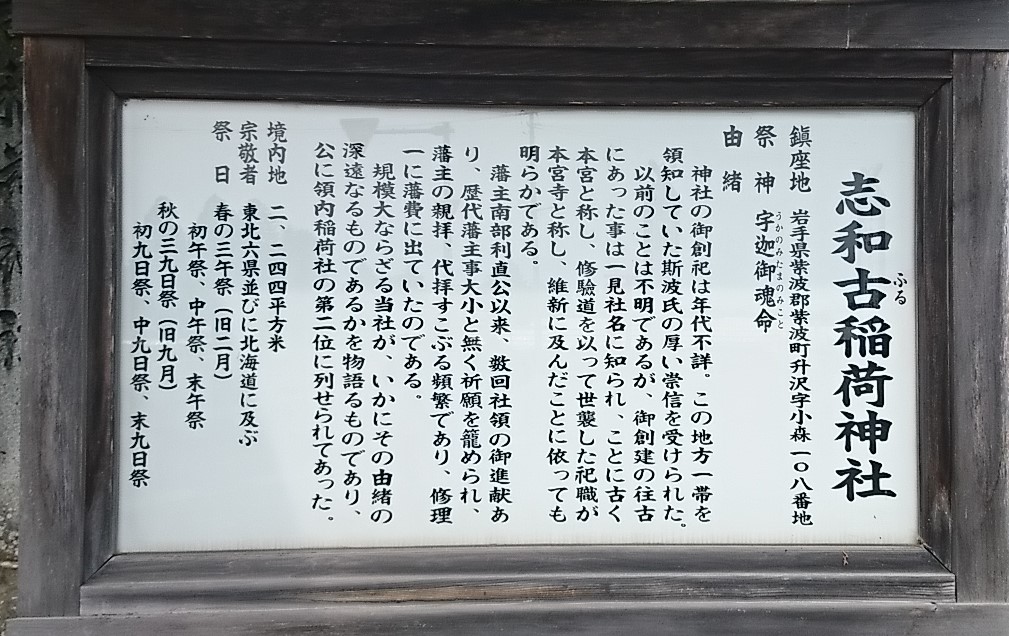 志和古稲荷神社
ふる
鎮座地 岩手県紫波郡紫波町升沢字小森一〇八番地
祭神 宇迦御魂命
うかのみたまのみこと
由緒
神社の御創祀は年代不詳。この地方一帯を
領知していた斯波氏の厚い崇信を受けられた。
以前のことは不明であるが、御創建の往古
にあった事は一見社名に知られ、ことに古く
本宮と称し、修験道を以って世襲した祀職が
本宮寺と称し、維新に及んだことに依っても
明らかである。
藩主南部利直公以来、数回社領の御進献あ
り、歴代藩主事大小と無く祈願を籠められ、
藩主の親拝、代拝すこぶる頻繁であり、修理
一に藩費に出ていたのである。
規模大ならざる当社が、いかにその由緒の
深遠なるものであるかを物語るものであり、
公に領内稲荷社の第二位に列せられてあった。
境内地 二、二四四平方米
宗敬者 東北六県並びに北海道に及ぶ
祭日 春の三午祭（旧二月）
初午祭、中午祭、末午祭
秋の三九日祭（旧九月）
初九日祭、中九日祭、末九日祭